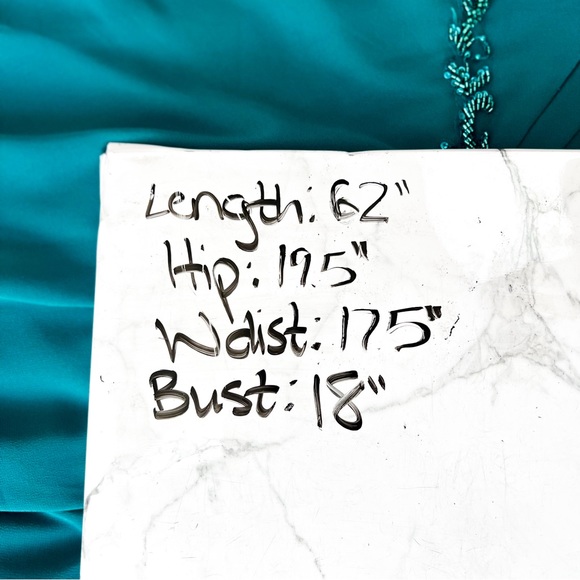 Length: 62"
Hip: 19.5"
Waist: 17.5"
Bust: 18"